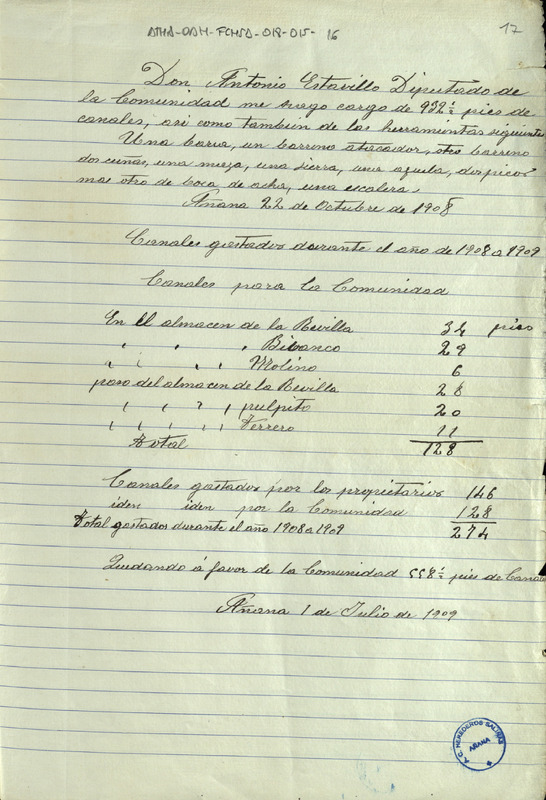 ATHA-DAH-FCHSA-018-015-16
17
Don Antonio Estavillo Diputado de
la Comunidad me hago cargo de 932½ pies de
canales, asi como tambien de las herramientas siguientes
Una barra, un barreno atacador, otro barreno
dos cuñas, una maza, una sierra, una azuela, dos picos
mas otro de boca de acha, una escalera.
Añana 22 de Octubre de 1908
Canales gastados durante el año de 1908 a 1909
Canales para la Comunidad
En El almacen de la Revilla 34 pies
" " " " Bibanco 29
" " " " Molino 6
para del almacen de la Revilla 28
" " " " pulpito 20
" " " " " Terrero 11
Total 128
Canales gastados por los propietarios 146
iden iden por la Comunidad 128
Total gastados durante el año 1908 a 1909 274
Quedando á favor de la Comunidad 558½ pies de Canal
Añana 1 de Julio de 1909
A.C. HEREDEROS SALINAS
AÑANA